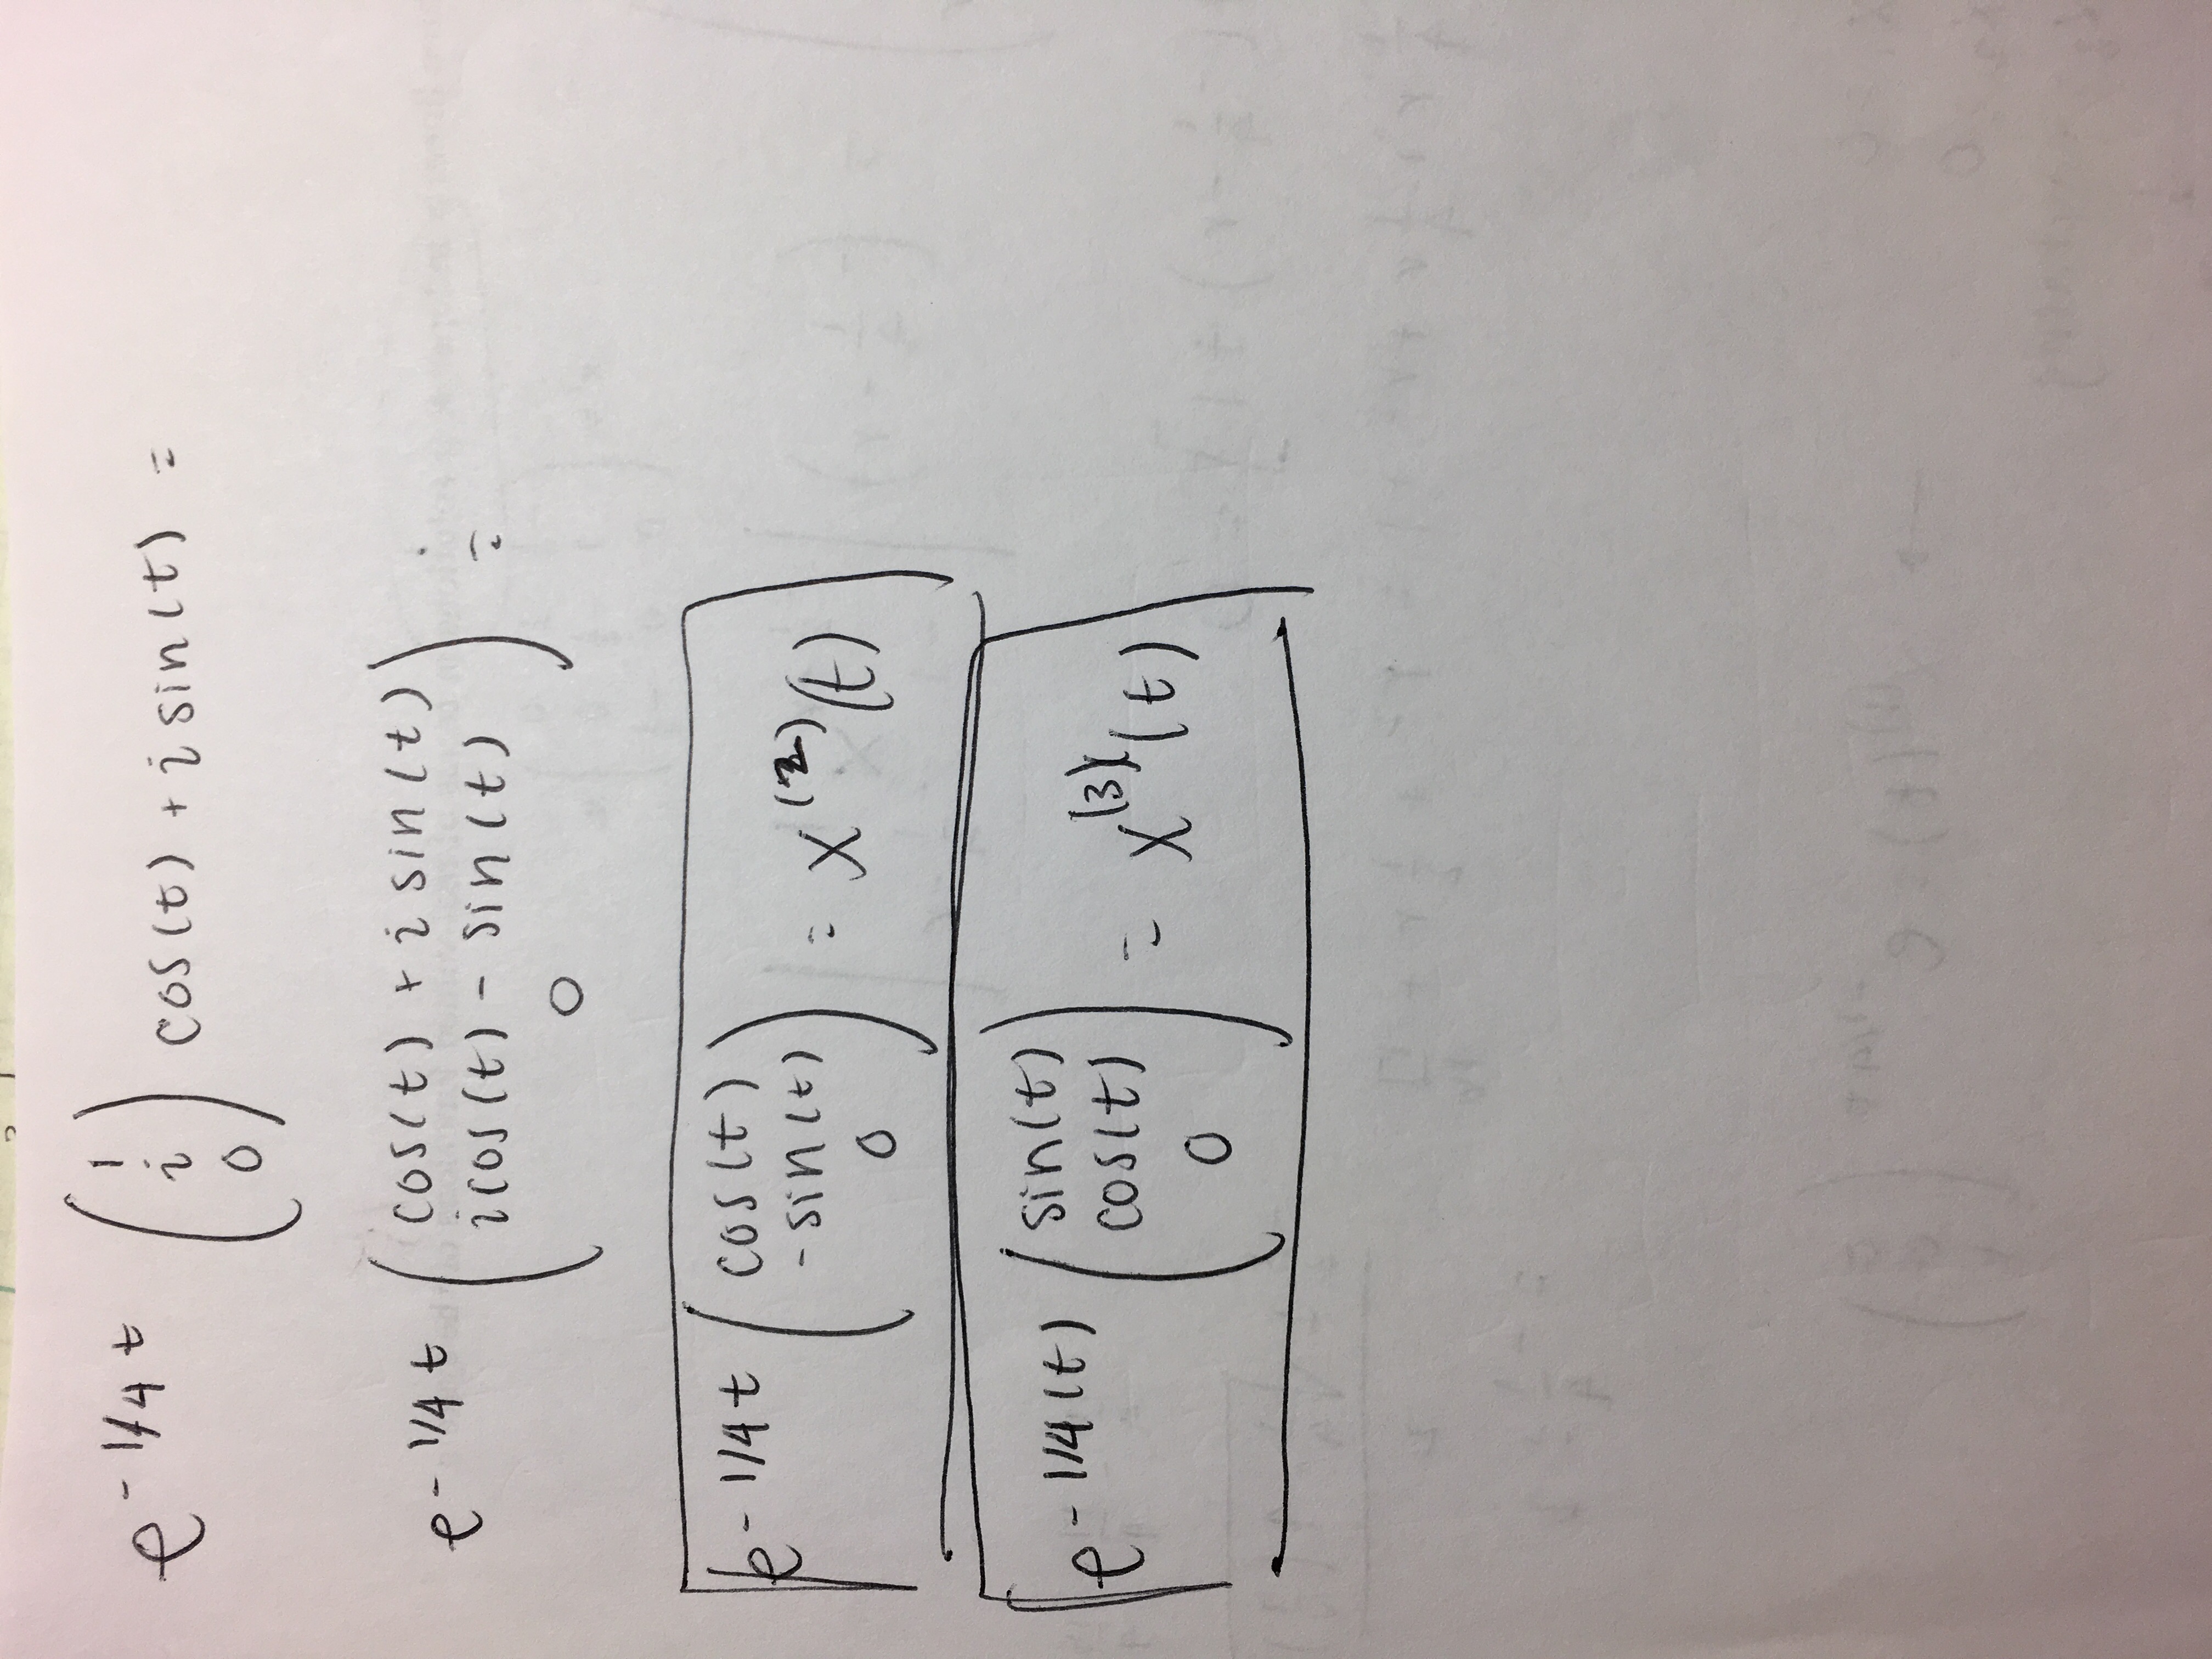 e^{-1/4 t} \begin{pmatrix} 1 \\ i \\ 0 \end{pmatrix} cos(t) + i sin(t) =
e^{-1/4 t} \begin{pmatrix} cos(t) + i sin(t) \\ i cos(t) - sin(t) \\ 0 \end{pmatrix} =
e^{-1/4 t} \begin{pmatrix} cos(t) \\ -sin(t) \\ 0 \end{pmatrix} = x^{(2)}(t)
e^{-1/4(t)} \begin{pmatrix} sin(t) \\ cos(t) \\ 0 \end{pmatrix} = x^{(3)}(t)